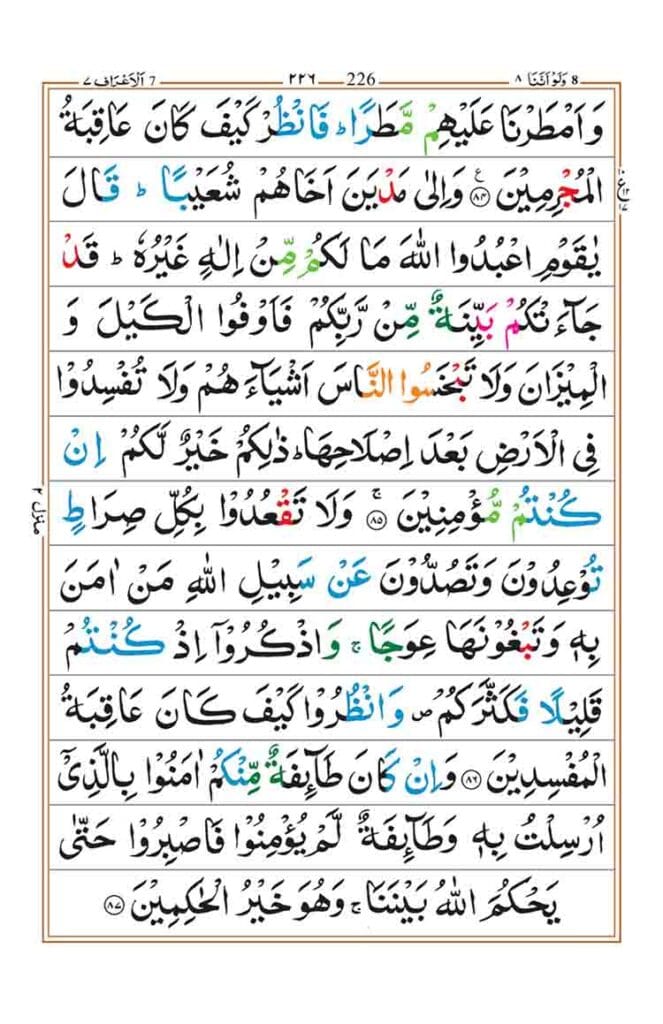 8 وَلَوْ اَنَّنَا ۸ 226 ۲۲۶ 7 اَلْاَعْرَاف ۷
وَ اَمْطَرْنَا عَلَيْهِمْ مَّطَرًا ؕ فَانْظُرْ كَيْفَ كَانَ عَاقِبَةُ
الْمُجْرِمِيْنَ ۟ۧ ۸۴ وَاِلٰى مَدْيَنَ اَخَاهُمْ شُعَيْبًا ؕ قَالَ
يٰقَوْمِ اعْبُدُوا اللّٰهَ مَا لَكُمْ مِّنْ اِلٰهٍ غَيْرُهٗ ؕ قَدْ
جَآءَتْكُمْ بَيِّنَةٌ مِّنْ رَّبِّكُمْ فَاَوْفُوا الْكَيْلَ وَ
الْمِيْزَانَ وَلَا تَبْخَسُوا النَّاسَ اَشْيَآءَهُمْ وَلَا تُفْسِدُوْا
فِى الْاَرْضِ بَعْدَ اِصْلَاحِهَا ؕ ذٰلِكُمْ خَيْرٌ لَّكُمْ اِنْ
كُنْتُمْ مُّؤْمِنِيْنَ ۚ ۸۵ وَلَا تَقْعُدُوْا بِكُلِّ صِرَاطٍ
تُوْعِدُوْنَ وَتَصُدُّوْنَ عَنْ سَبِيْلِ اللّٰهِ مَنْ اٰمَنَ
بِهٖ وَتَبْغُوْنَهَا عِوَجًا ۚ وَاذْكُرُوْۤا اِذْ كُنْتُمْ
قَلِيْلًا فَكَثَّرَكُمْ ۪ وَانْظُرُوْا كَيْفَ كَانَ عَاقِبَةُ
الْمُفْسِدِيْنَ ۸۶ وَاِنْ كَانَ طَآئِفَةٌ مِّنْكُمْ اٰمَنُوْا بِالَّذِىْۤ
اُرْسِلْتُ بِهٖ وَطَآئِفَةٌ لَّمْ يُؤْمِنُوْا فَاصْبِرُوْا حَتّٰى
يَحْكُمَ اللّٰهُ بَيْنَنَا ۚ وَهُوَ خَيْرُ الْحٰكِمِيْنَ ۸۷
منزل ۲